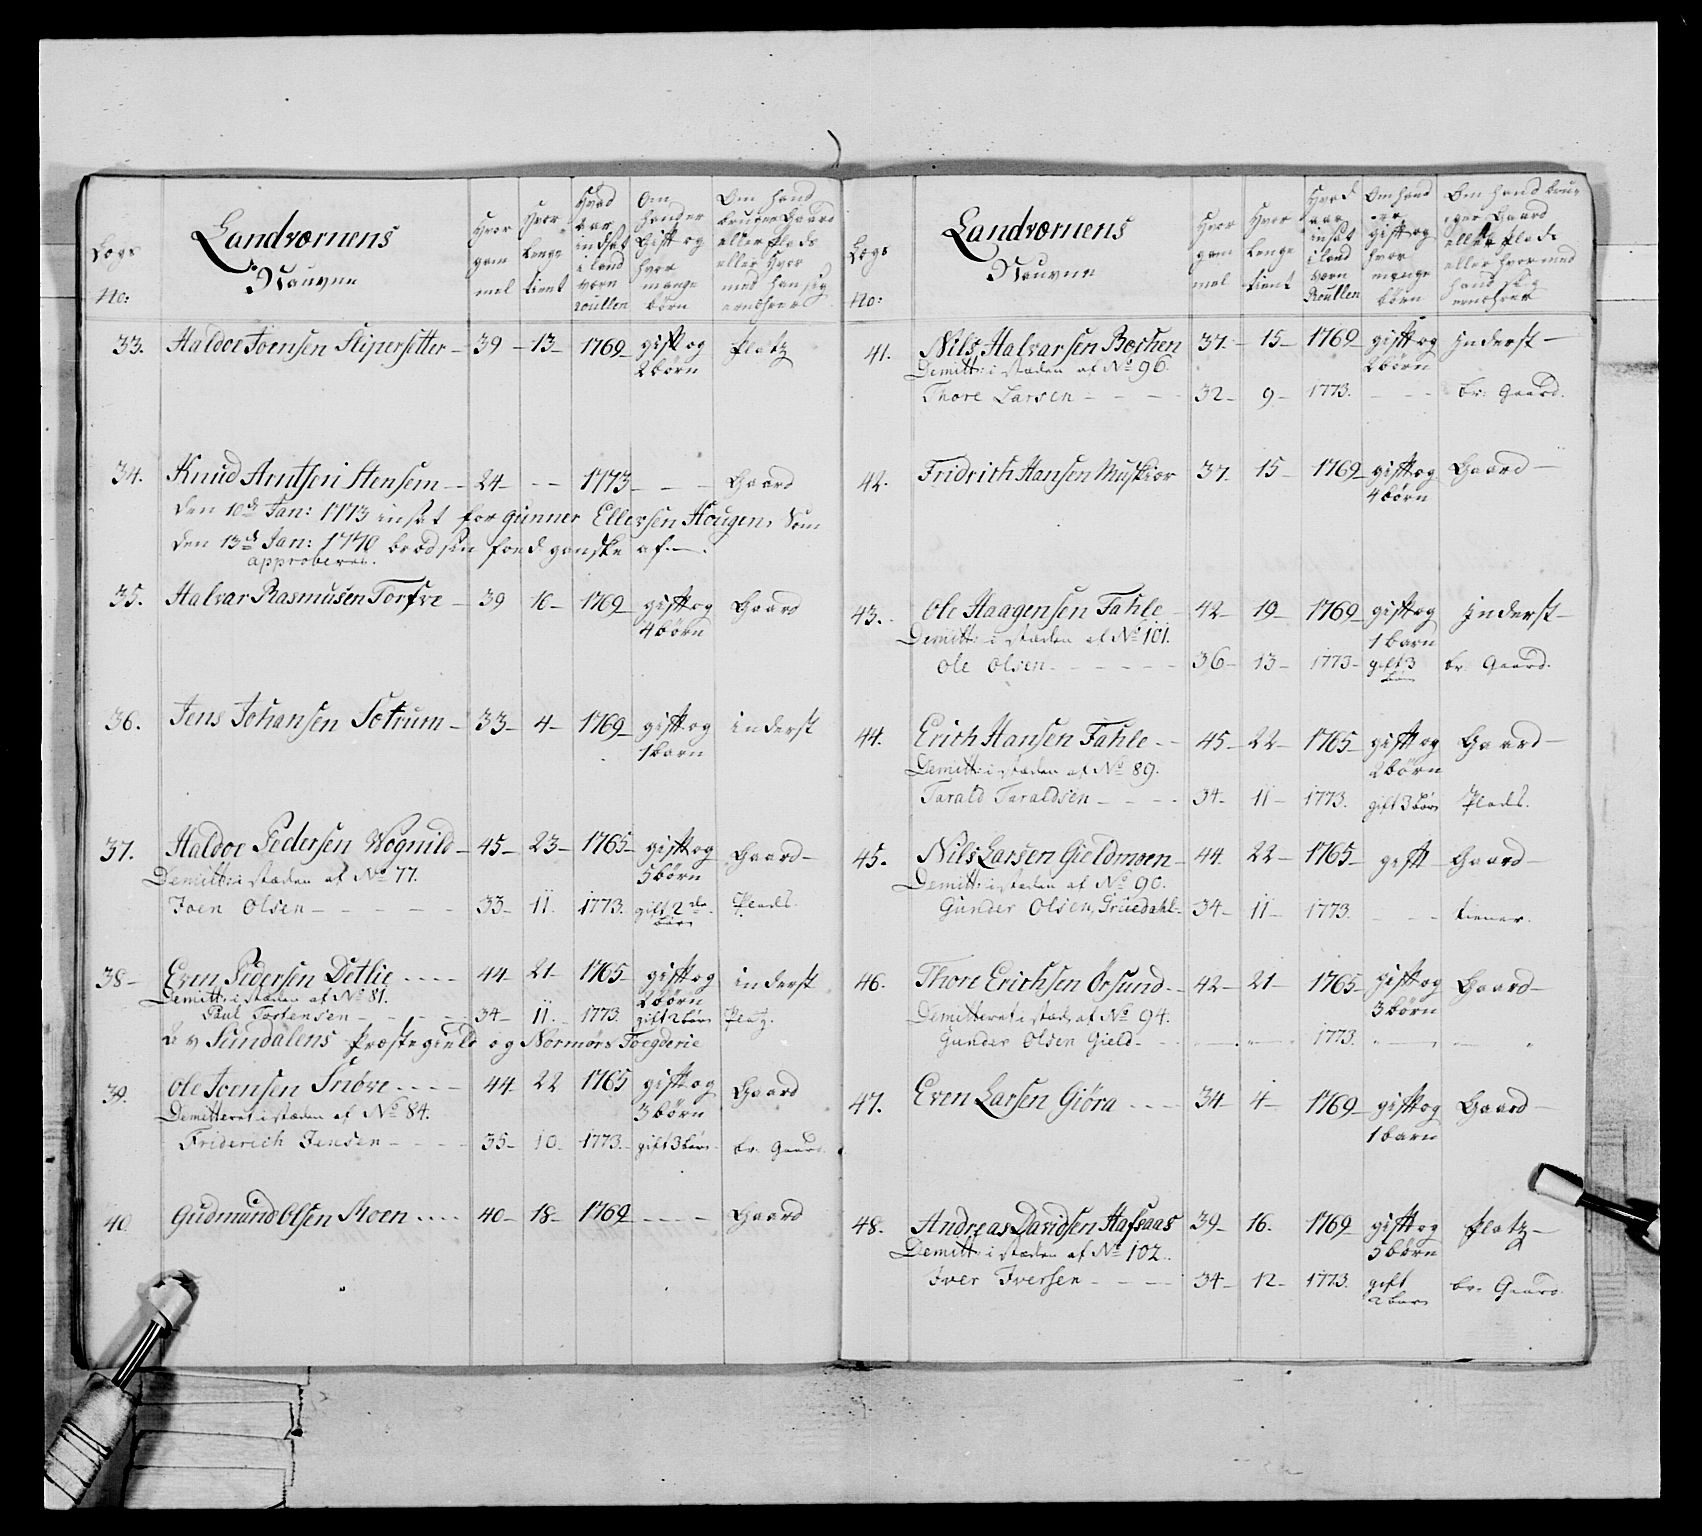 Lægs
No:
Landværnens
Nauvne
Hvor
gam
mel
Hvor
Lenge
tient
Hvad
aar
indsat
i land
værn
roullen
Om
hand er
Gift og
hvor
mange
børn
Om hand
bruger Gaard
eller plads
eller hvor
med han sig
ernærer
33. Haldor Joensen Slipersetter – 39 – 13 – 1769 gift og platz
2 børn
34. Knud Arntsen Stensem – 24 – – – 1773 – – – Gaard
den 10de Jan: 1773 insat for gunner Ellefsen Hougen, Som
den 13de Jan: 1770
approberet.
35. Halvar Rasmusen Torfve – 39 16 – 1769 gift og Gaard
4 børn
36. Jens Johansen Sotrum – 33 – 4 – 1769 gift og inderst
1 barn
37. Haldor Pedersen Vognild – 45 – 23 – 1765 gift og Gaard –
5 børn
Demitt: i stæden af No 77.
Joen Olsen – – – – 33 – 11. 1773. gift 2de Plads.
børn
38 – Even Pedersen Detlie – – – – 44 – 21 – 1765 gift og inderst
2 børn
Demitt: i stæden af No 81.
Paul Tostensen – – – – 34 – 11. 1773. gift 2 børn Platz.
Sundalens Præstegield og Normørs Foegderie
39. Ole Joensen Snøve – – – – 44 22 1765 gift og Gaard
3 børn
Demitteret i stæden af No 84.
Friderich Jensen – – – – 35 – 10 – 1773. – gift 3 børn – br. Gaard.
40 Gudmund Olsen Moen . . . . 40 – 18 – 1769 – – – – Gaard
Lægs
No:
Landværnens
Nauvne
Hvor
gam
mel
Hvor
Lenge
tient
Hvad
aar
insat
i land
værn
Roullen
Om hand
er
gift og
hvor
mange
børn
Om hand bru-
ger Gaard
eller plads
eller hvormed
hand sig
ernærer
41. Nils Halvarsen Boshen 37 – 15 – 1769 gift og Inderst –
2 børn
Demitt: i stæden af No 96.
Thore Larsen – – – – 32 – 9 – 1773. – – – br: Gaard.
42. Fridrich Hansen Muskior 37 – 15 – 1769 gift og Gaard –
4 børn
43. Ole Haagensen Fahle – 42 – 19 – 1769 gift og Inderst –
1 barn
Demitt: i stæden af No 101.
Ole Olsen – – – – – – 36 – 13 – 1773 – gift 3 br. Gaard.
børn
44. Erich Hansen Fahle – – 45 – 22 – 1765 gift og Gaard –
2 børn
Demitt: i stæden af No 89.
Tarald Taraldsen – – – – 34 – 11 – 1773. gift 3 børn Plads.
45. Nils Larsen Gieldmoen – 44 22 – 1765 – gift Gaard –
Demitt: i stæden af No 90.
Gunder Olsen, Gruedahl – 34 – 11 – 1773. – – tiener.
46. Thore Erichsen Ørsund – – 42 – 21 – 1765 – gift og Gaard –
3 børn
Demitteret i stæd: af No 94.
Gunder Olsen Gield – . 1773.
47. Even Larsen Giøra – – – – 34 – 4 – 1769 – gift og Gaard –
1 barn
48. Andreas Davidsen Hafsaas 39 – 16. 1769 gift og platz –
5 børn
Demitt: i stæden af No 102.
Iver Iversen – – – – 34 – 12 – 1773. gift br. Gaard.